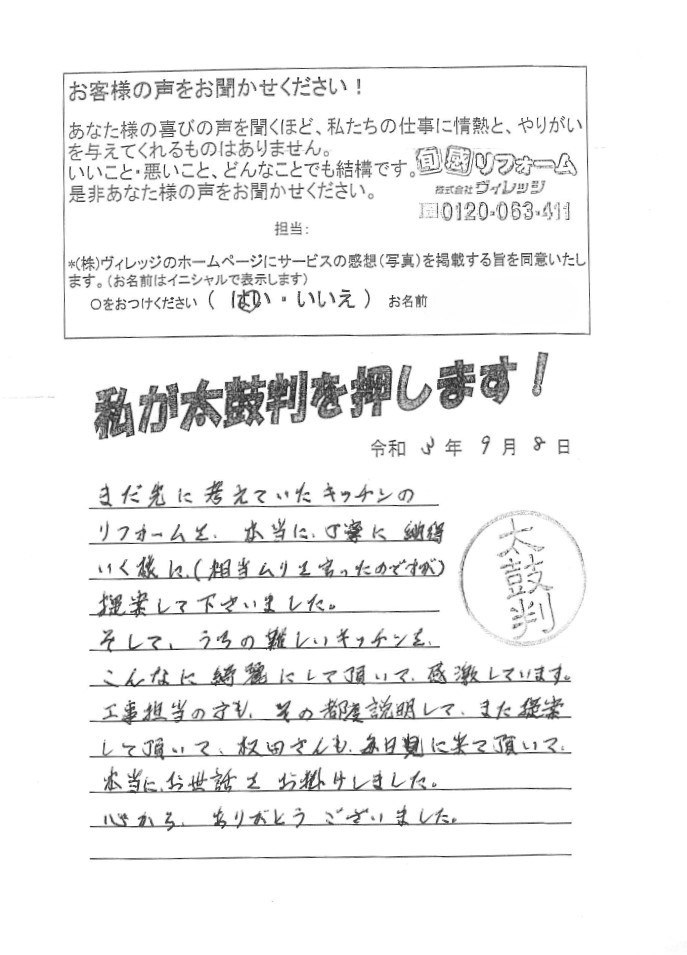 お客様の声をお聞かせください！
あなた様の喜びの声を聞くほど、私たちの仕事に情熱と、やりがい
を与えてくれるものはありません。
いいこと・悪いこと、どんなことでも結構です。
是非あなた様の声をお聞かせください。
旬感リフォーム
株式会社ヴィレッジ
0120-063-411
担当:
*(株)ヴィレッジのホームページにサービスの感想(写真)を掲載する旨を同意いたし
ます。(お名前はイニシャルで表示します)
○をおつけください ( はい ・ いいえ ) お名前
私が太鼓判を押します！
令和 3 年 9 月 8 日
まだ先に考えていたキッチンの
リフォームを、本当に、丁寧に納得
いく様に、(相当ムリを言ったのですが)
提案して下さいました。
太鼓判
そして、うちの難しいキッチンを、
こんなに綺麗にして頂いて、感激しています。
工事担当の方も、その都度説明して、また提案
して頂いて、权田さんも、毎日見に来て頂いて、
本当に、お世話をお掛けしました。
心から、ありがとうございました。